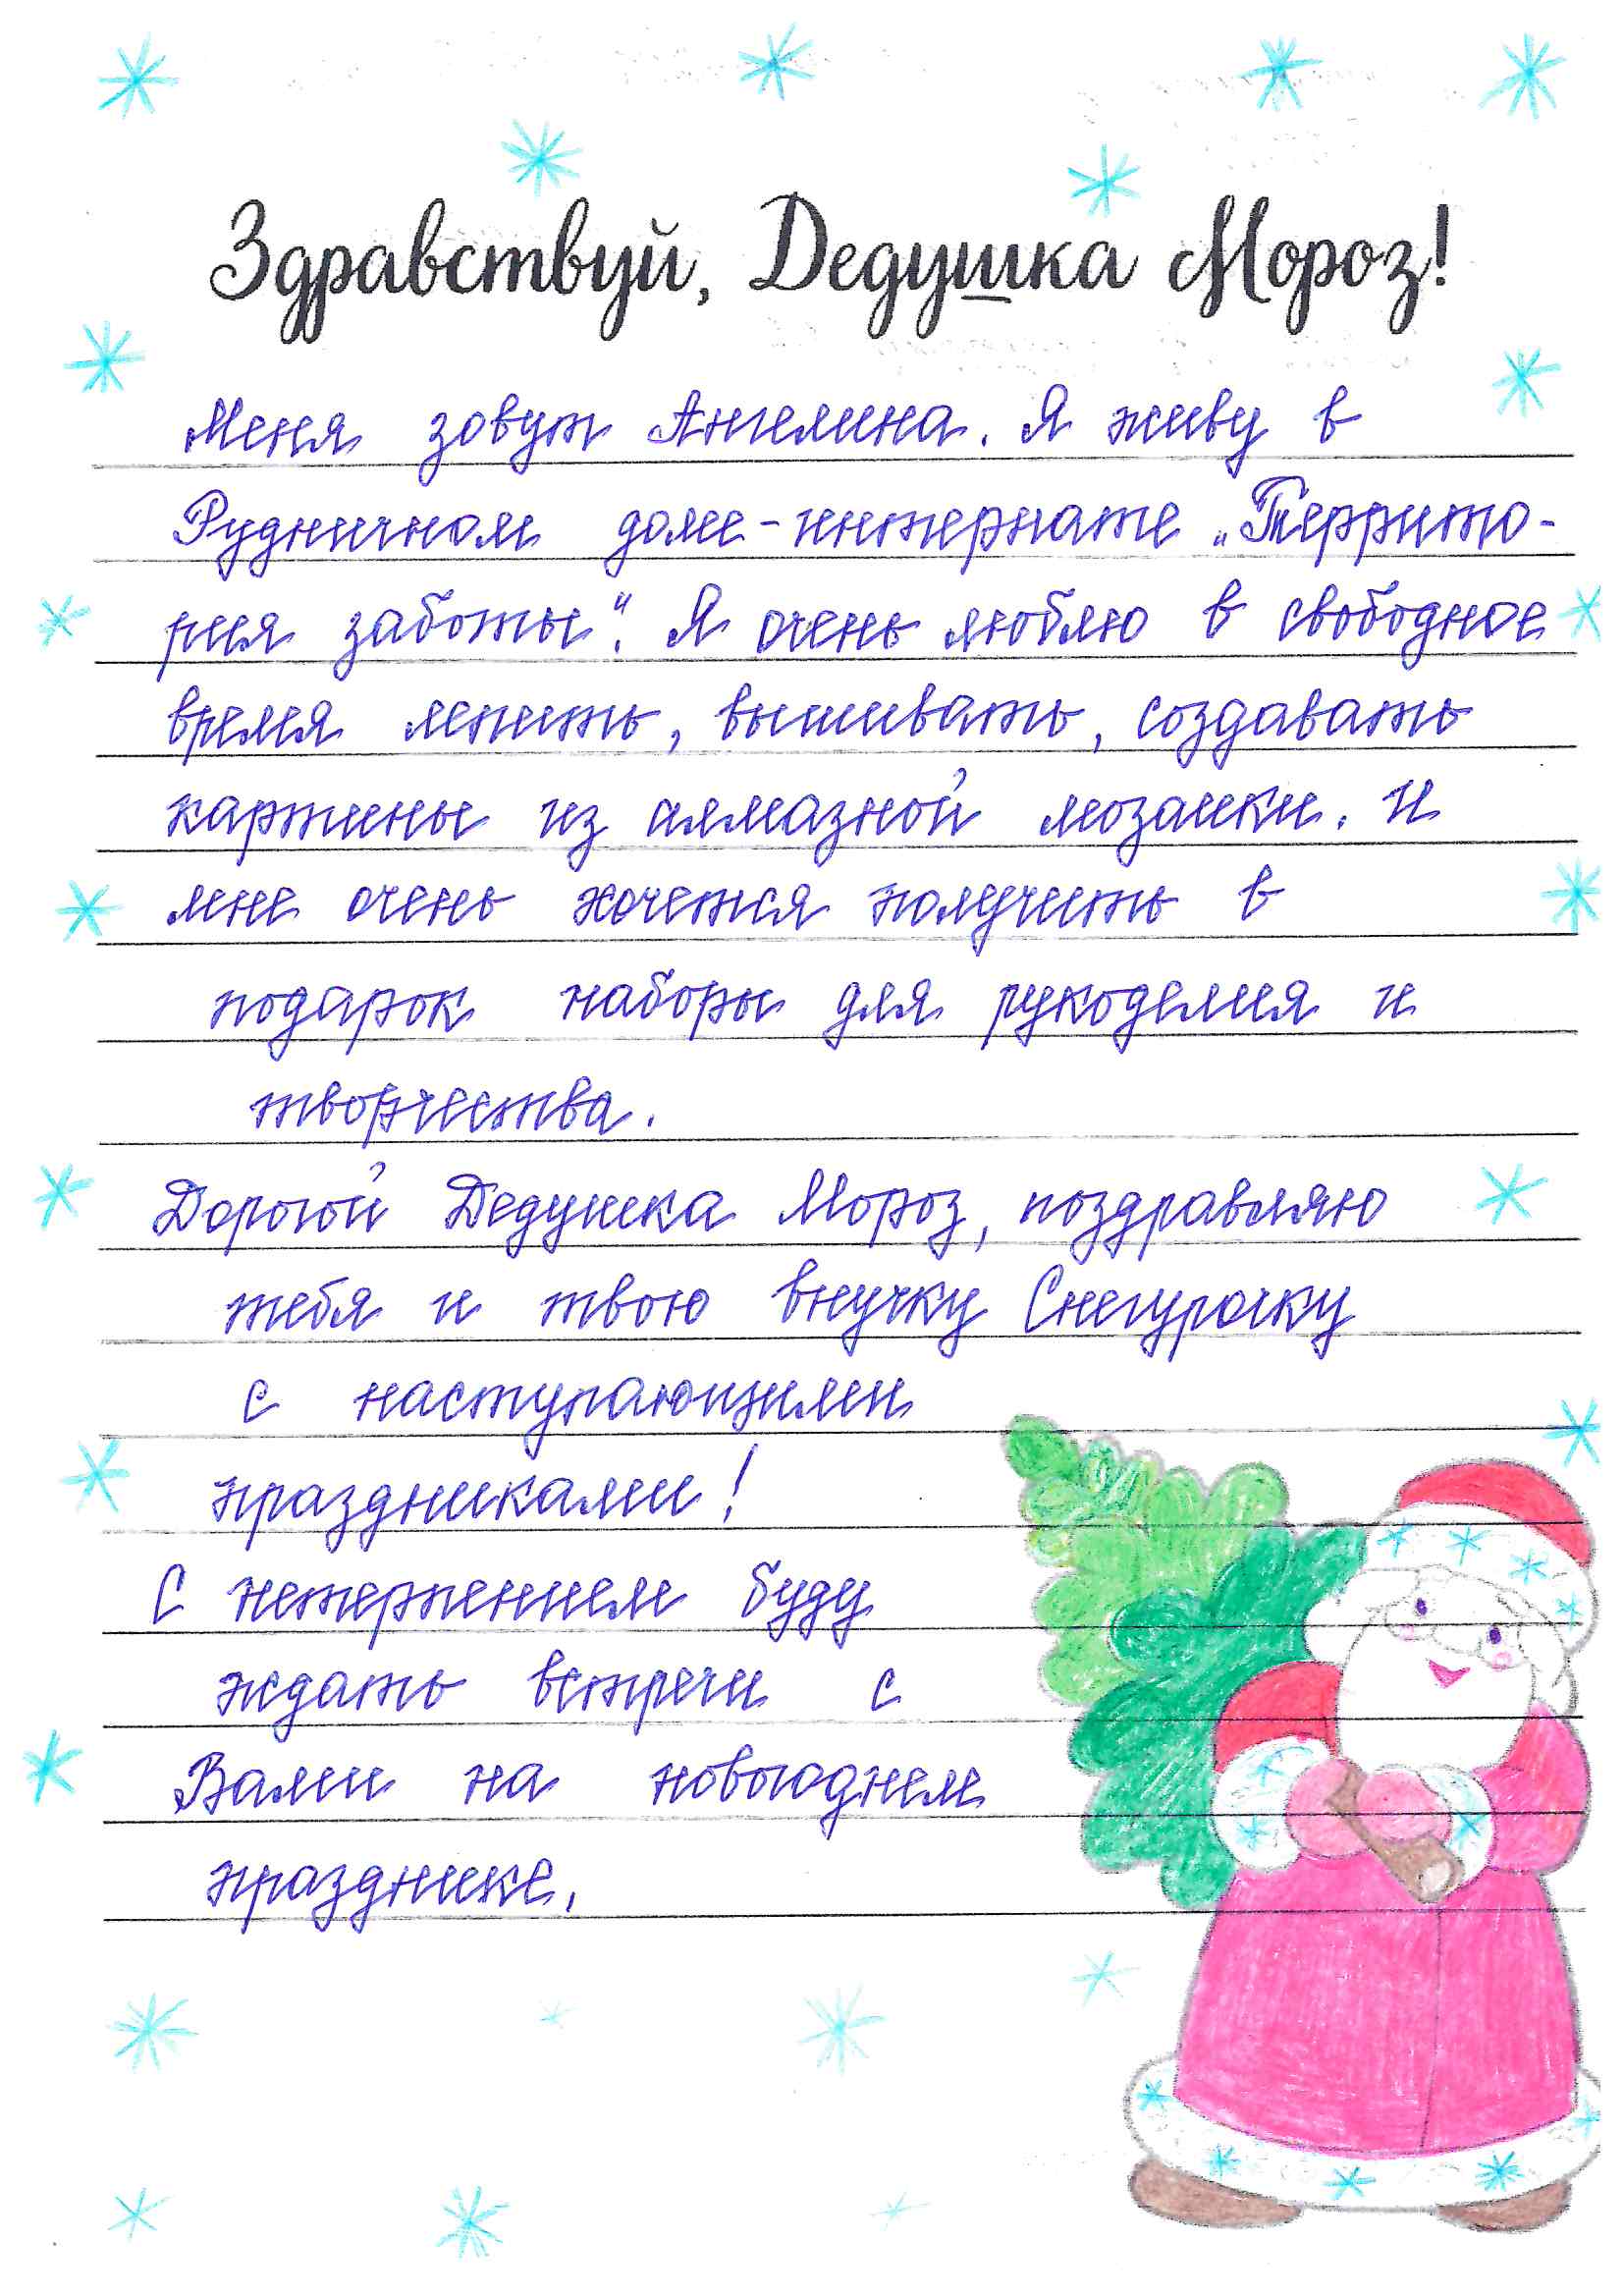 Здравствуй, Дедушка Мороз!
Меня зовут Ангелина. Я живу в
Рудничном доме-интернате „Террито-
рия заботы“. Я очень люблю в свободное
время лепить, вышивать, создавать
картины из алмазной мозаики. И
мне очень хочется получить в
подарок наборы для рукоделия и
творчества.
Дорогой Дедушка Мороз, поздравляю
тебя и твою внучку Снегурочку
с наступающими
праздниками!
С нетерпением буду
ждать встречи с
Вами на новогоднем
празднике.